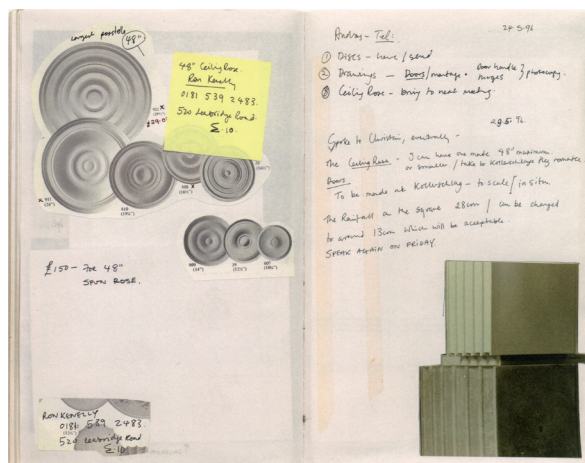 Largest possible
48"
£29.0
48" Ceiling Rose.
Ron Kenelly
0181 539 2483.
520 Leabridge Road
E.10.
£150 - For 48"
SPUN ROSE.
RON KENELLY
0181 539 2483.
520 Leabridge Road
E.10
Andras - Tel:
24-5-96
① Discs - have / send
② Drawings - Doors/montage • Door handle } photocopy.
hinges
③ Ceiling Rose - bring to next meeting.
29.5.96.
Spoke to Christian, eventually -
The Ceiling Rose - I can have one made 48" maximum.
or smaller / take to they
Doors.
To be made at - to scale / in situ.
The on the square 28cm / can be changed
to around 13cm which will be acceptable.
SPEAK AGAIN ON FRIDAY.